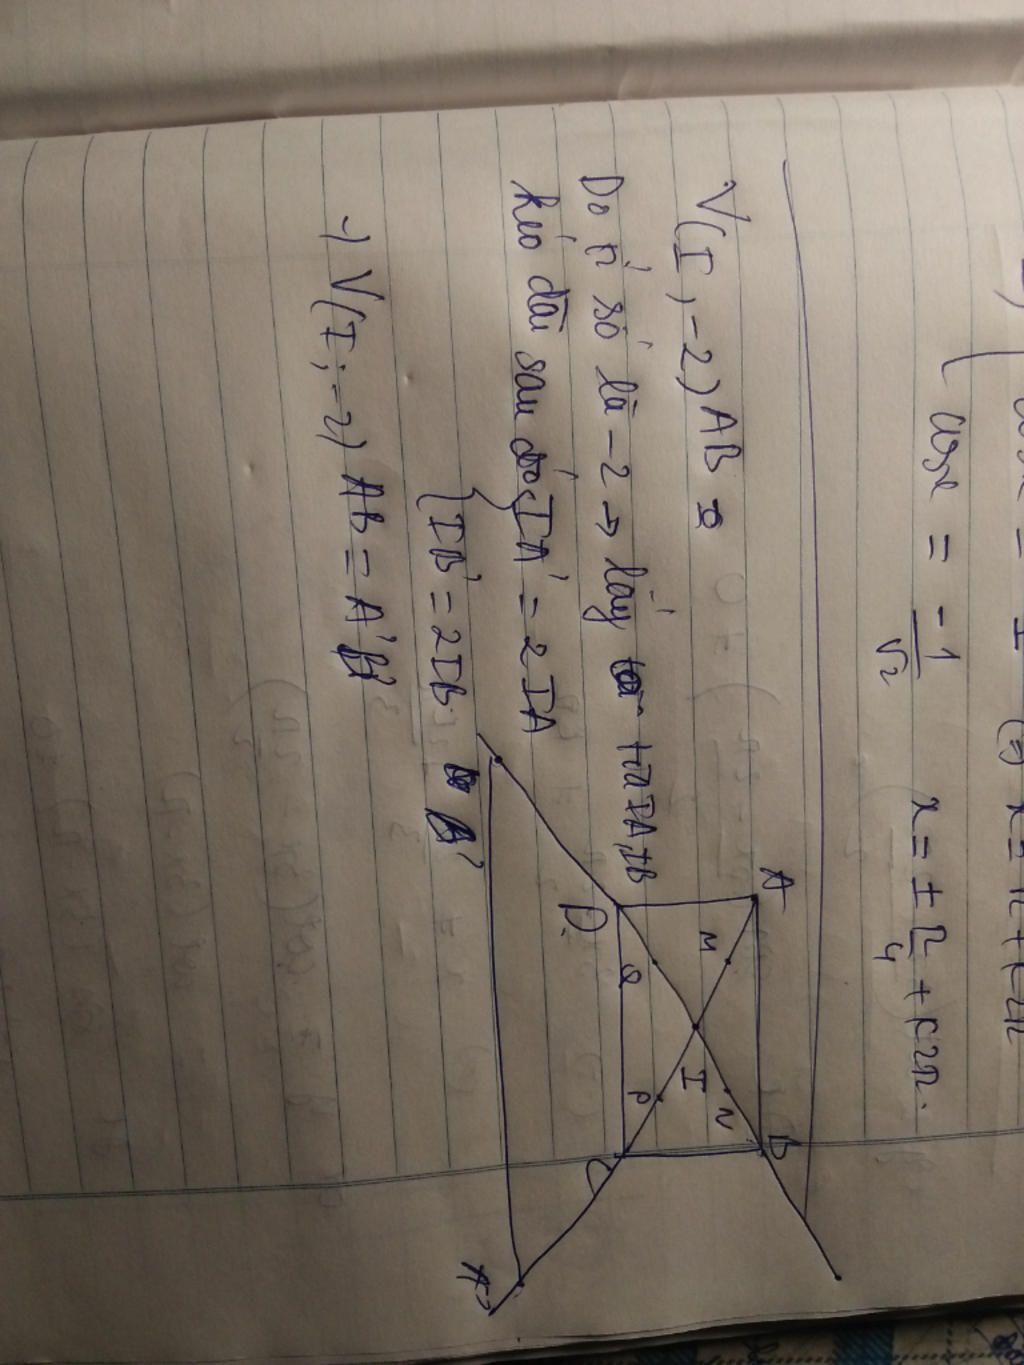 cosx = -1/√2 x = ± π/4 + k2π.
V(I, -2) AB
Do tỉ số là -2 → lấy tia IA, IB
kéo dài sau đó { IA' = 2IA
IB' = 2IB
→ V(I; -2) AB = A'B'
A
B
M
N
I
Q
P
D
C
A'